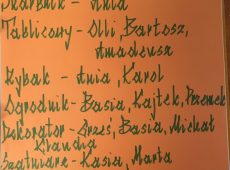 Skarbnik - Ania
Tablicowy - Olli, Bartosz,
Amadeusz
Rybak - Ania, Karol
Ogrodnik - Basia, Kajtek, Przemek
Dekorator - Grześ, Basia, Michał
Klaudia
Szatniarz - Kasia, Marta